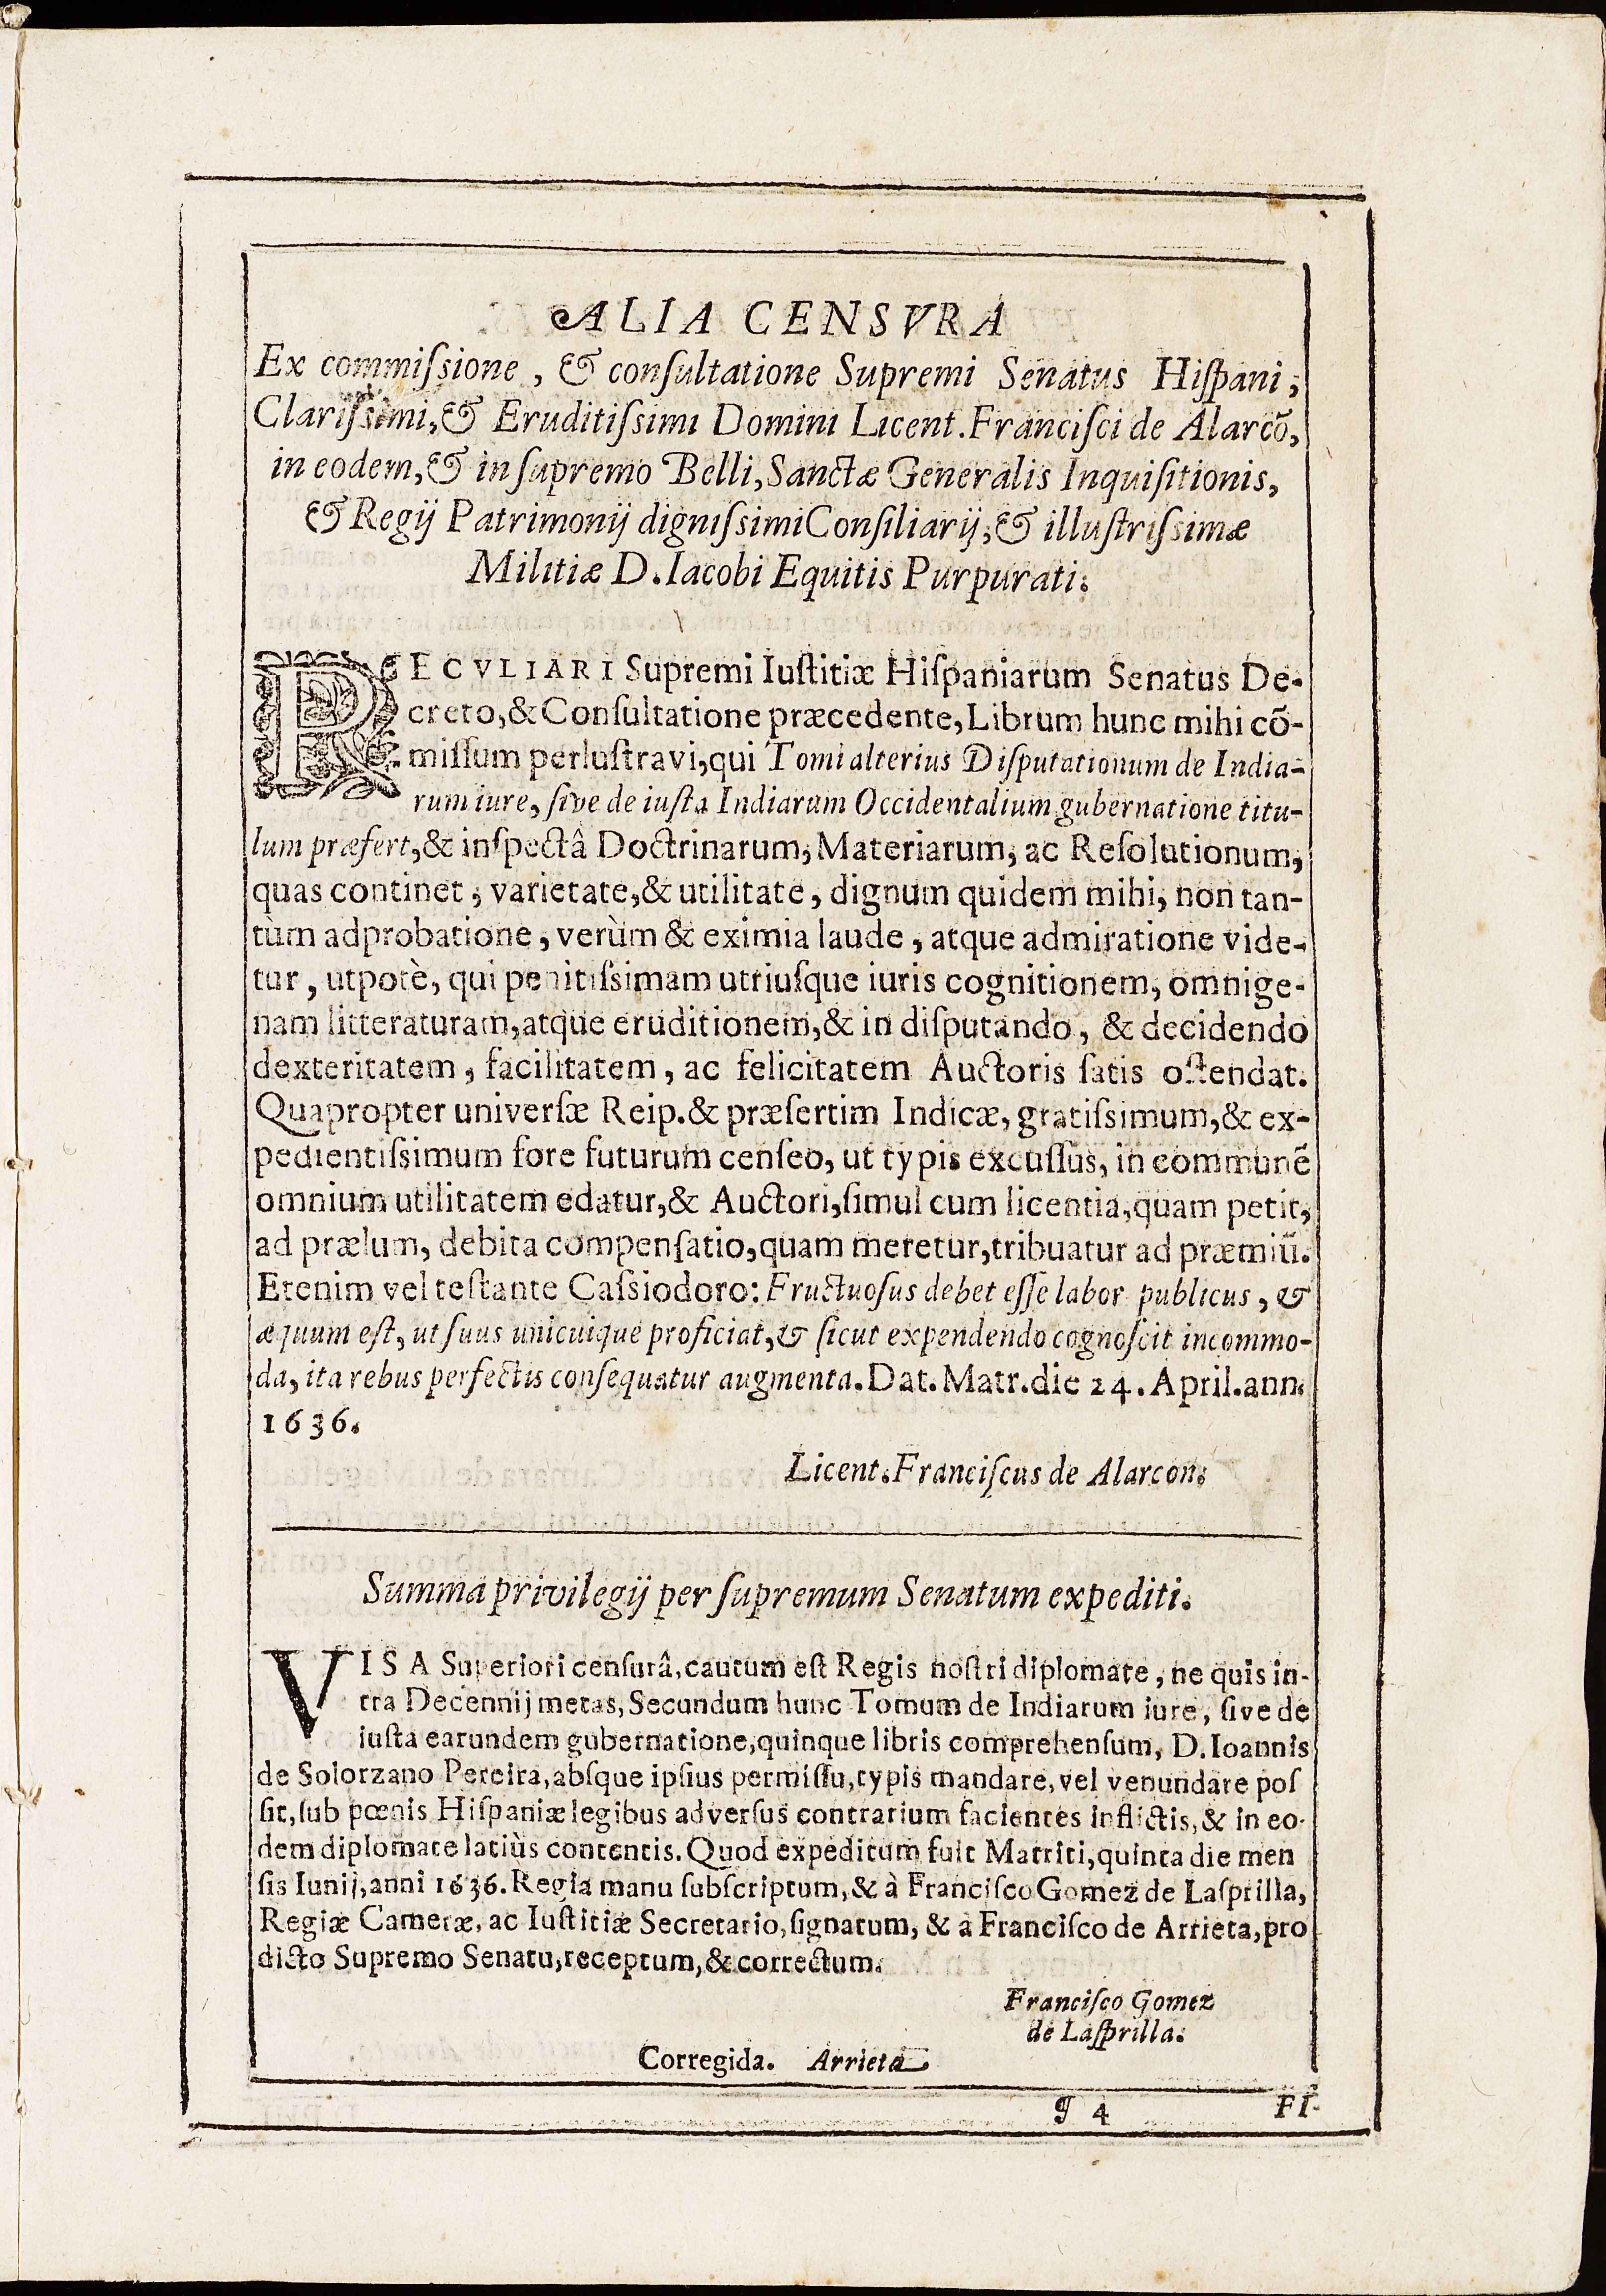 ALIA CENSVRA
Ex commiſsione, & conſultatione Supremi Senatus Hiſpani,
Clariſsimi, & Eruditiſsimi Domini Licent. Franciſci de Alarcõ,
in eodem, & in ſupremo Belli, Sanctæ Generalis Inquiſitionis,
& Regij Patrimonij digniſsimi Conſiliarij, & illuſtriſsimæ
Militiæ D. Iacobi Equitis Purpurati.
PECVLIARI Supremi Iuſtitiæ Hiſpaniarum Senatus De-
creto, & Conſultatione præcedente, Librum hunc mihi cõ-
miſſum perluſtravi, qui Tomi alterius Diſputationum de India-
rum iure, ſive de iuſta Indiarum Occidentalium gubernatione titu-
lum præfert, & inſpectâ Doctrinarum, Materiarum, ac Reſolutionum,
quas continet, varietate, & utilitate, dignum quidem mihi, non tan-
tùm adprobatione, verùm & eximia laude, atque admiratione vide-
tur, utpotè, qui penitiſsimam utriuſque iuris cognitionem, omnige-
nam litteraturam, atque eruditionem, & in diſputando, & decidendo
dexteritatem, facilitatem, ac felicitatem Auctoris ſatis oſtendat.
Quapropter univerſæ Reip. & præſertim Indicæ, gratiſsimum, & ex-
pedientiſsimum fore futurum cenſeo, ut typis excuſſus, in communẽ
omnium utilitatem edatur, & Auctori, ſimul cum licentia, quam petit,
ad prælum, debita compenſatio, quam meretur, tribuatur ad præmiũ.
Etenim vel teſtante Caſsiodoro: Fructuoſus debet eſſe labor publicus, &
æquum eſt, ut ſuus unicuique proficiat, & ſicut expendendo cognoſcit incommo-
da, ita rebus perfectis conſequatur augmenta. Dat. Matr. die 24. April. ann.
1636.
Licent. Franciſcus de Alarcon.
Summa privilegij per ſupremum Senatum expediti.
VISA Superiori cenſurâ, cautum eſt Regis noſtri diplomate, ne quis in-
tra Decennij metas, Secundum hunc Tomum de Indiarum iure, ſive de
iuſta earundem gubernatione, quinque libris comprehenſum, D. Ioannis
de Solorzano Pereira, abſque ipſius permiſſu, typis mandare, vel venundare poſ
ſit, ſub pœnis Hiſpaniæ legibus adverſus contrarium facientes inflictis, & in eo-
dem diplomate latiùs contentis. Quod expeditum fuit Matriti, quinta die men
ſis Iunij, anni 1636. Regia manu ſubſcriptum, & à Franciſco Gomez de Laſprilla,
Regiæ Cameræ, ac Iuſtitiæ Secretario, ſignatum, & à Franciſco de Arrieta, pro
dicto Supremo Senatu, receptum, & correctum.
Franciſco Gomez
de Laſprilla.
Corregida. Arrieta
¶ 4 FI-